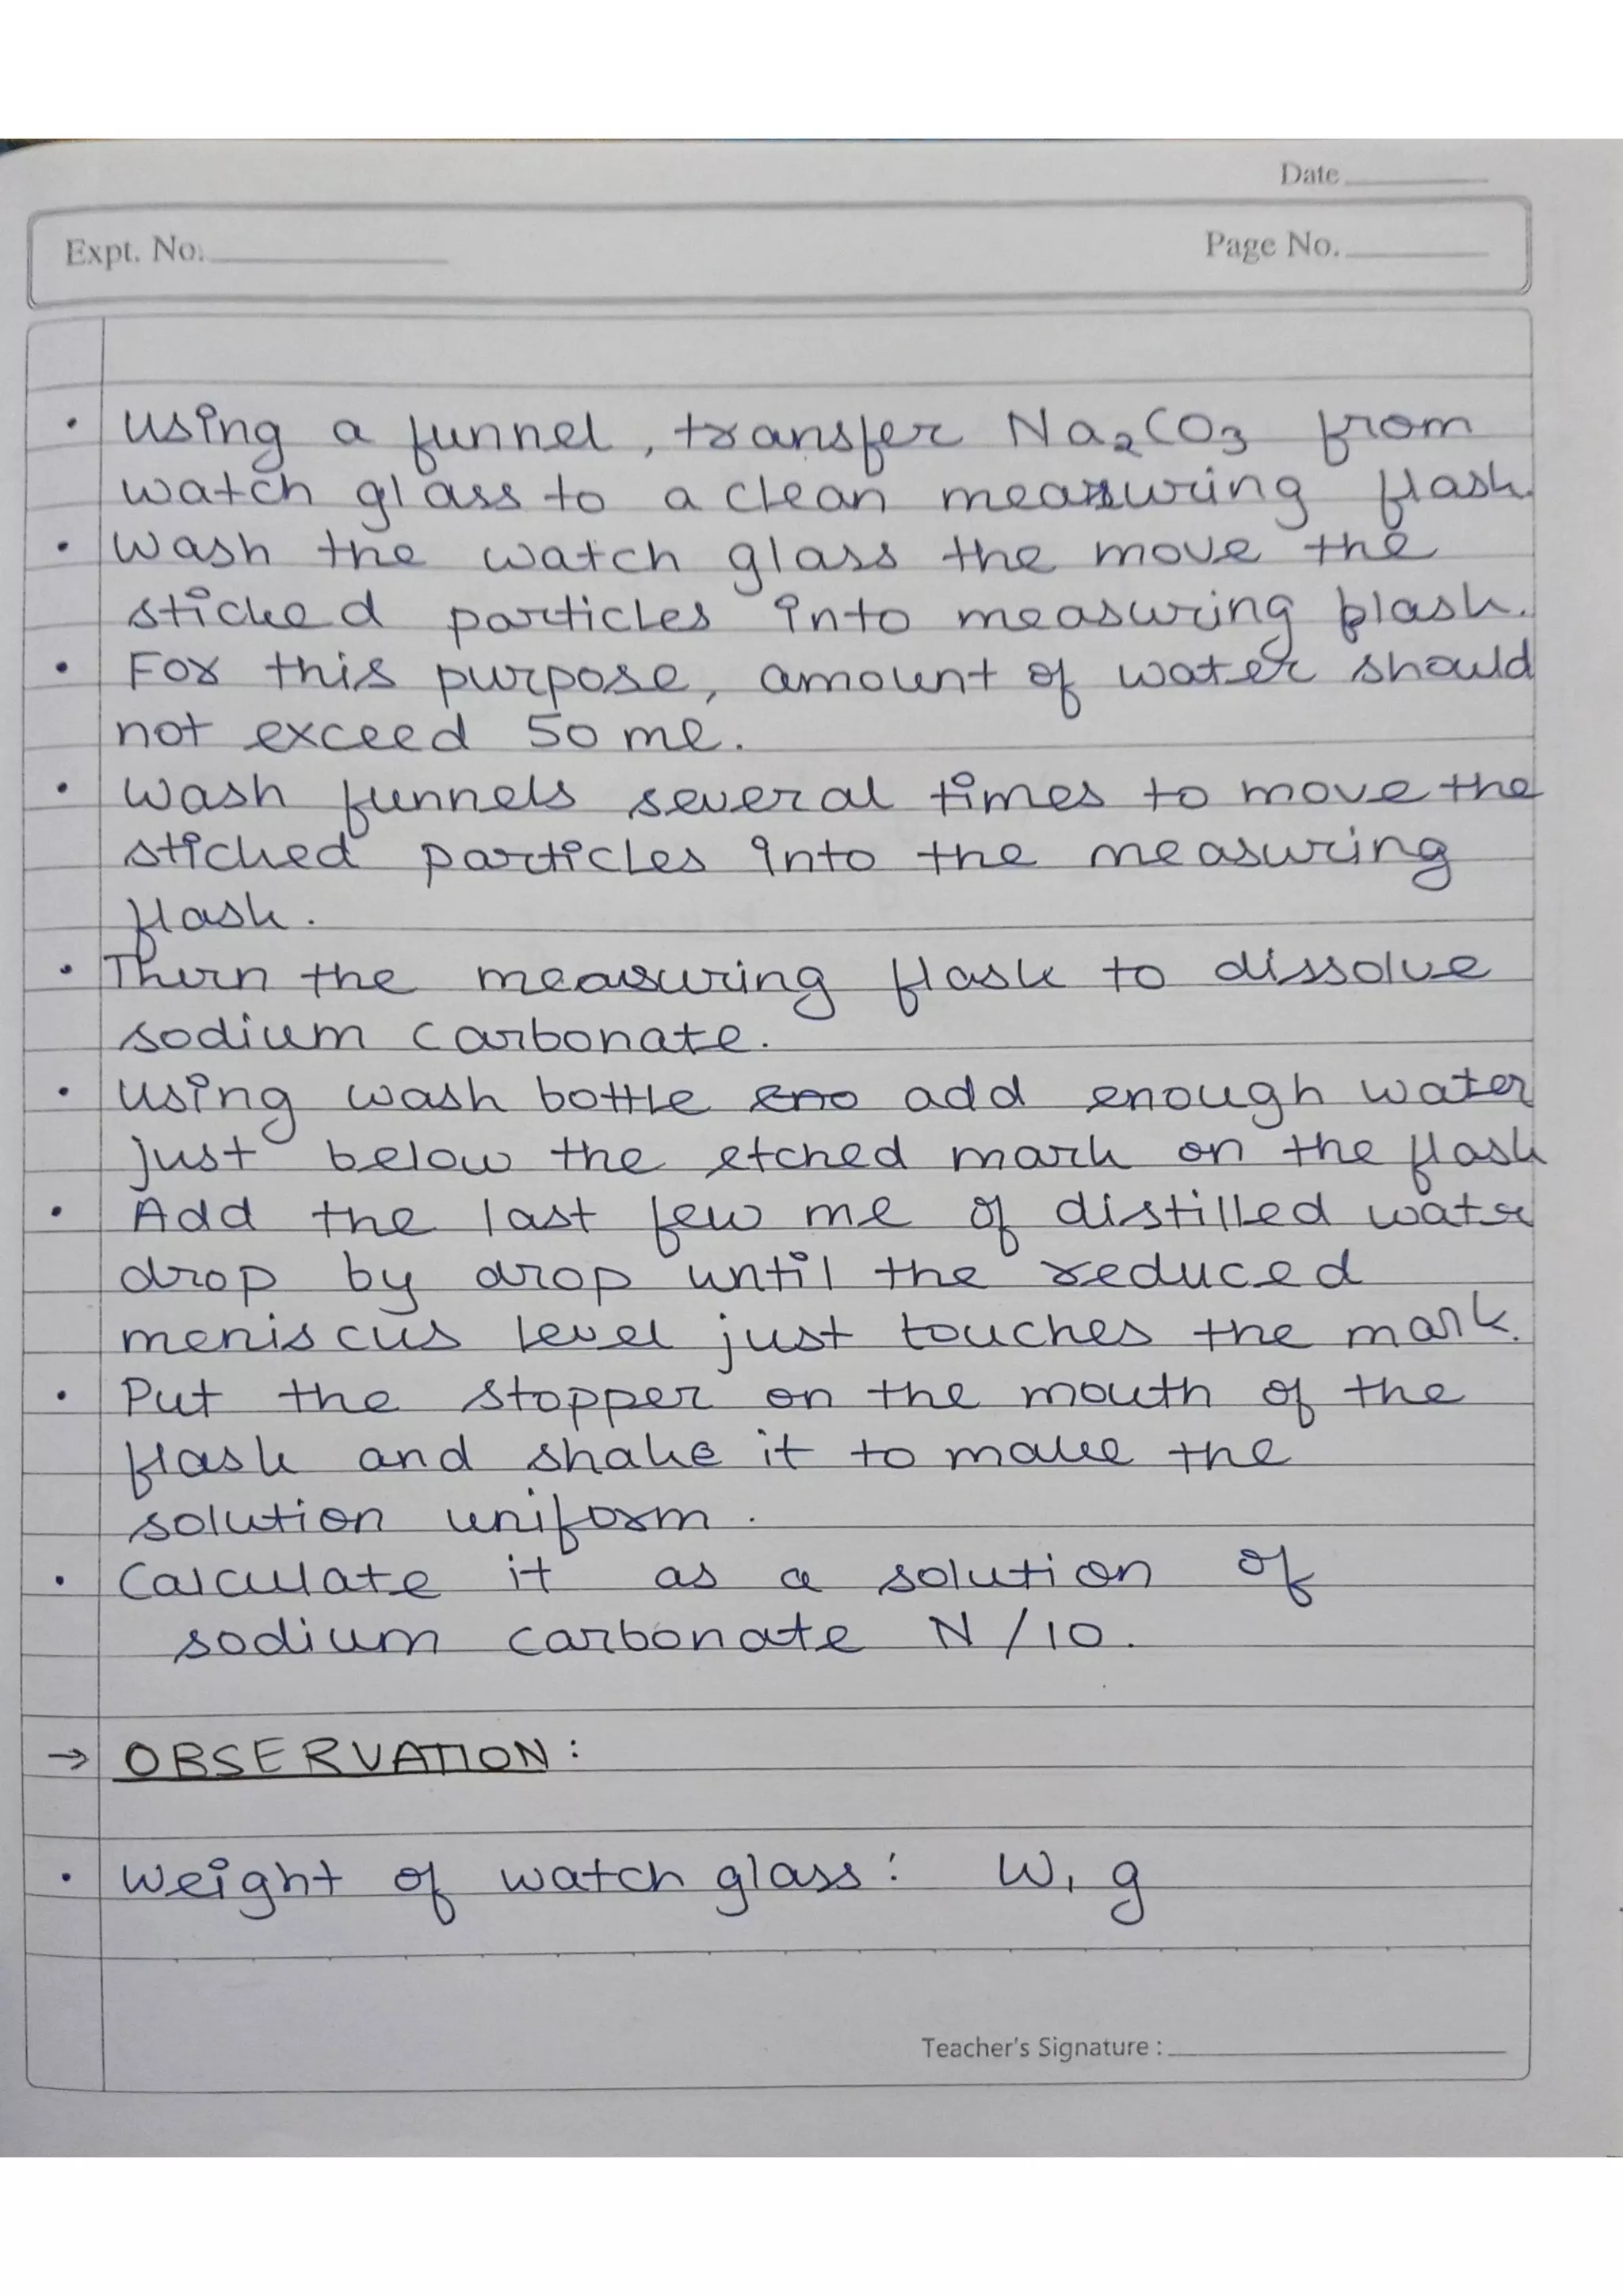 Date
Expt. No.
Page No.
• Using a funnel, transfer Na₂CO₃ from
watch glass to a clean measuring flask.
• Wash the watch glass the move the
sticked particles into measuring flask.
• For this purpose, amount of water should
not exceed 50 ml.
• Wash funnels several times to move the
sticked particles into the measuring
flask.
• Thurn the measuring flask to dissolve
sodium carbonate.
• Using wash bottle add enough water
just below the etched mark on the flask
• Add the last few ml of distilled water
drop by drop until the reduced
meniscus level just touches the mark.
• Put the stopper on the mouth of the
flask and shake it to make the
solution uniform.
• Calculate it as a solution of
sodium carbonate N/10.
→ OBSERVATION:
• Weight of watch glass: W₁ g
Teacher's Signature :